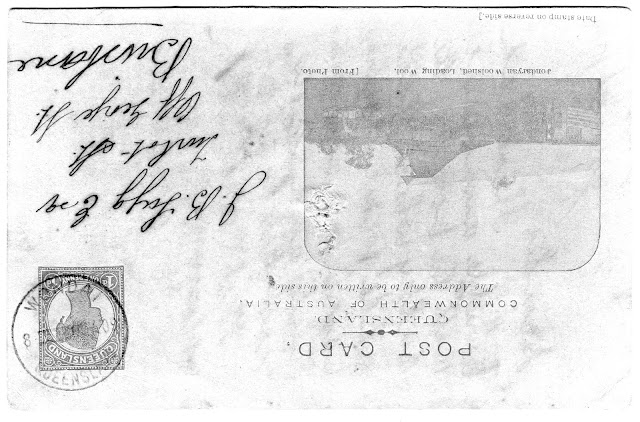 POST CARD.
QUEENSLAND.
COMMONWEALTH OF AUSTRALIA.
The Address only to be written on this side
QUEENSLAND
1
QUEENSLAND
8
J. B. Esq
Turbot St.
Off George St.
Brisbane
Jondaryan Woolshed, Loading Wool. [From Photo.
[Date stamp on reverse side.]